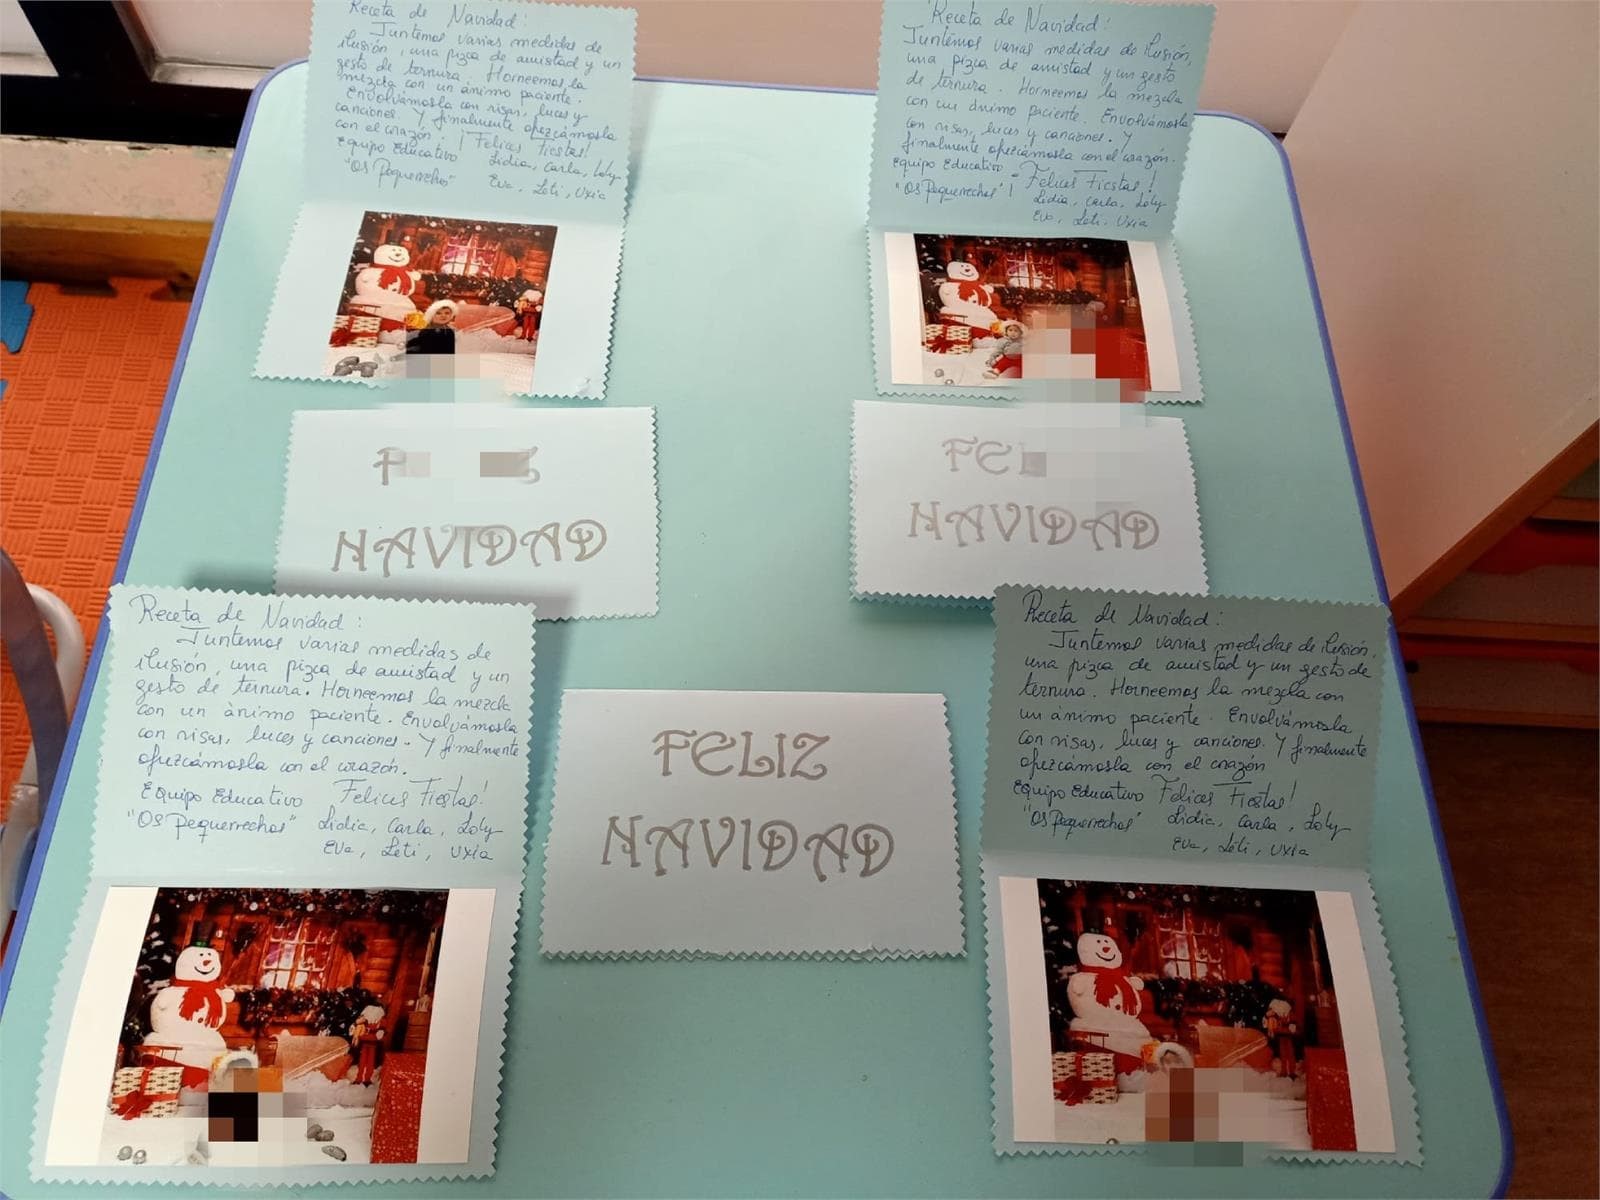 Receta de Navidad:
Juntemos varias medidas de
ilusión, una pizca de amistad y un
gesto de ternura. Horneemos la
mezcla con un ánimo paciente.
Envolvámosla con risas, luces y
canciones. Y finalmente ofrezcámosla
con el corazón. ¡Felices Fiestas!
Equipo Educativo Lidia, Carla, Loly
"Os Pequerrechos" Eva, Leti, Uxia
Receta de Navidad:
Juntemos varias medidas de ilusión,
una pizca de amistad y un gesto
de ternura. Horneemos la mezcla
con un ánimo paciente. Envolvámosla
con risas, luces y canciones. Y
finalmente ofrezcámosla con el corazón.
Equipo Educativo
"Os Pequerrechos" ¡Felices Fiestas!
Lidia, Carla, Loly
Eva, Leti, Uxia
NAVIDAD
NAVIDAD
Receta de Navidad:
Juntemos varias medidas de
ilusión, una pizca de amistad y un
gesto de ternura. Horneemos la mezcla
con un ánimo paciente. Envolvámosla
con risas, luces y canciones. Y finalmente
ofrezcámosla con el corazón.
Equipo Educativo Felices Fiestas!
"Os Pequerrechos" Lidia, Carla, Loly
Eva, Leti, Uxia
FELIZ
NAVIDAD
Receta de Navidad:
Juntemos varias medidas de ilusión,
una pizca de amistad y un gesto de
ternura. Horneemos la mezcla con
un ánimo paciente. Envolvámosla
con risas, luces y canciones. Y finalmente
ofrezcámosla con el corazón
Equipo Educativo Felices Fiestas!
"Os Pequerrechos" Lidia, Carla, Loly
Eva, Leti, Uxia